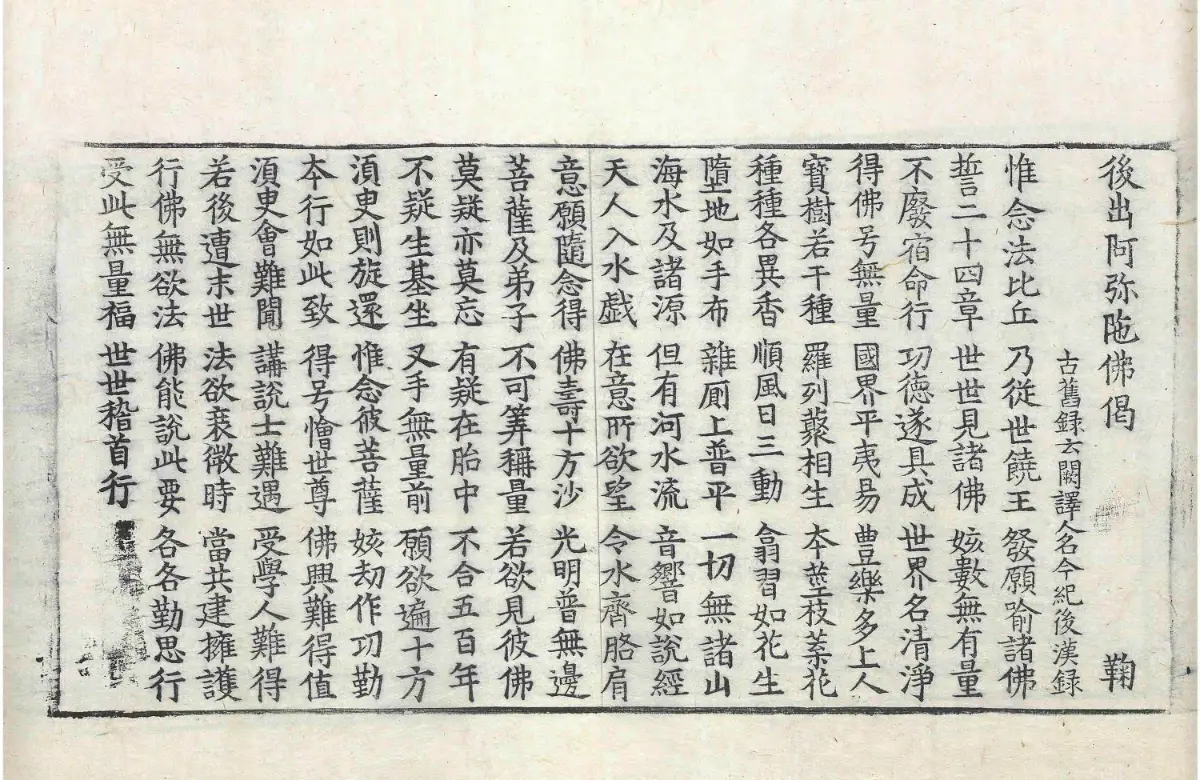 後出阿弥陁佛偈 鞠
古舊録云闕譯人名今紀後漢録
惟念法比丘 乃從世饒王 發願喻諸佛
誓二十四章 世世見諸佛 姟數無有量
不廢宿命行 功德遂具成 世界名清淨
得佛号無量 國界平夷易 豊樂多上人
寶樹若干種 羅列藂相生 本莖枝葉花
種種各異香 順風日三動 翕習如花生
墮地如手布 雜厠上普平 一切無諸山
海水及諸源 但有河水流 音響如說經
天人入水戲 在意所欲望 令水齊胳肩
意願隨念得 佛壽十方沙 光明普無邊
菩薩及弟子 不可筭稱量 若欲見彼佛
莫疑亦莫忘 有疑在胎中 不合五百年
不疑生基坐 叉手無量前 願欲遍十方
湏臾則旋還 惟念彼菩薩 姟刼作功勤
本行如此致 得号懀世尊 佛興難得值
湏臾會難聞 講說士難遇 受學人難得
若後遭末世 法欲衰微時 當共建擁護
行佛無欲法 佛能說此要 各各勤思行
受此無量福 世世稽首行